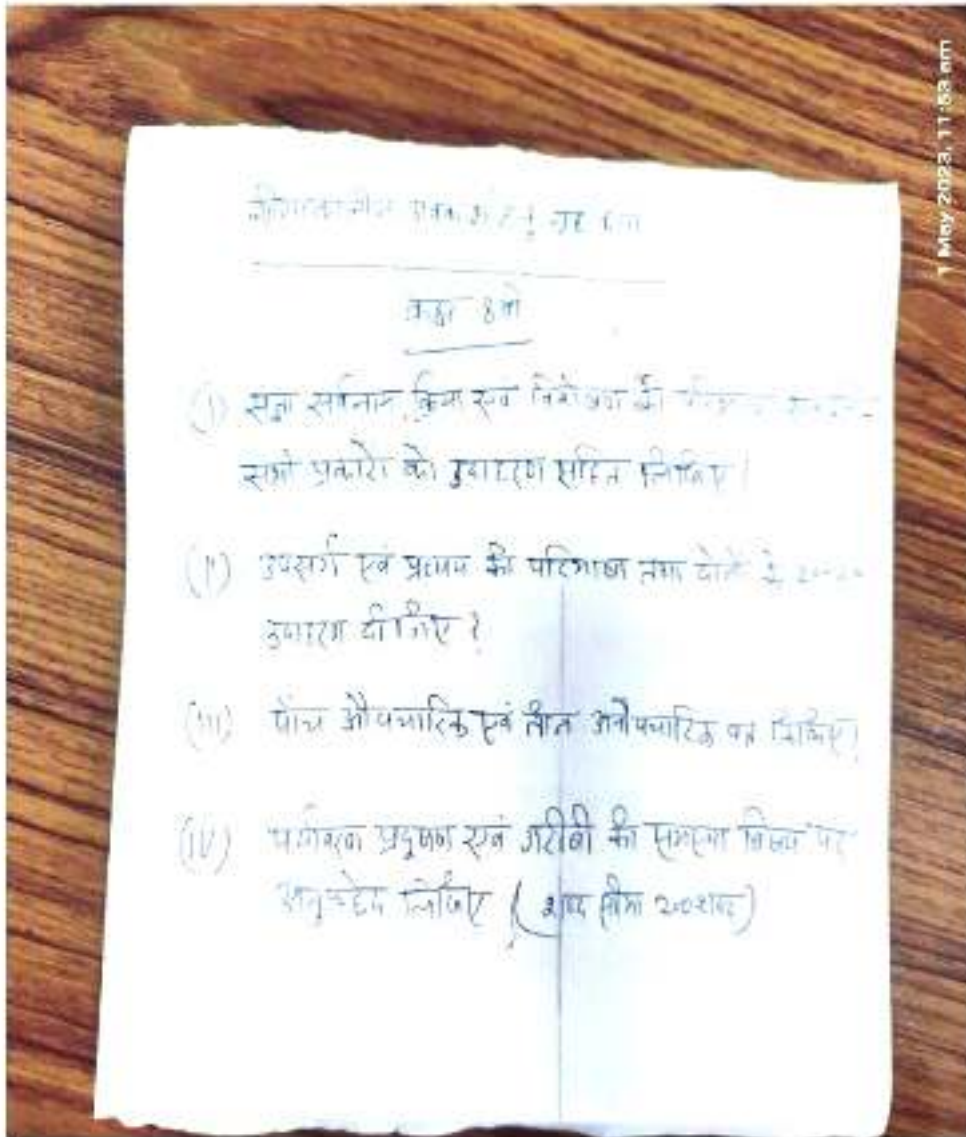 1 May 2023, 11:53 am
गृह कार्य
कक्षा 8वी
(I) संज्ञा सर्वनाम, क्रिया एवं विशेषण की
सभी प्रकारो को उदाहरण सहित लिखिए।
(II) उपसर्ग एवं प्रत्यय की परिभाषा तथा दोनों के 20-20
उदाहरण दीजिए?
(III) पाँच औपचारिक एवं तीन अनौपचारिक पत्र लिखिए।
(IV) पर्यावरण प्रदूषण एवं गरीबी की समस्या विषय पर
अनुच्छेद लिखिए (शब्द सीमा 200शब्द)